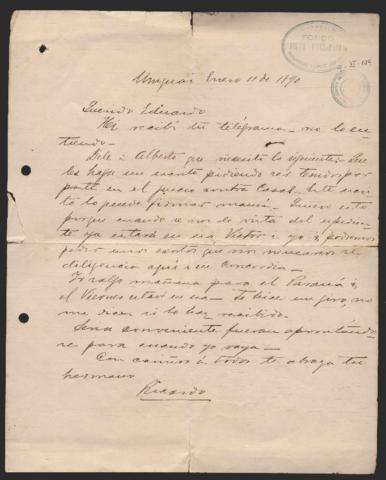 FONDO
Uruguay Enero 11 de 1890
Querido Eduardo
Hoy recibí tu telégrama - no lo en-
tiendo -
Dile á Alberto que
les haga un escrito pidiendo ser tenidos por
parte en el juicio contra Casal.
lo puede firmar mamá. Quiero esto
porque cuando se nos dé vista del espedien-
te ya estará en esa Victor i yo i podremos
pedir unos exortos que nos
diligencia aquí i en Concordia -
Yo salgo mañana para el Paraná i
el Viernes estaré en esa - Te hice un giro, no
me dicen si lo han recibido -
Seria conveniente fueran aprontándo-
se para cuando yo vaya -
Con cariños á todos te abraza tu
hermano
Ricardo